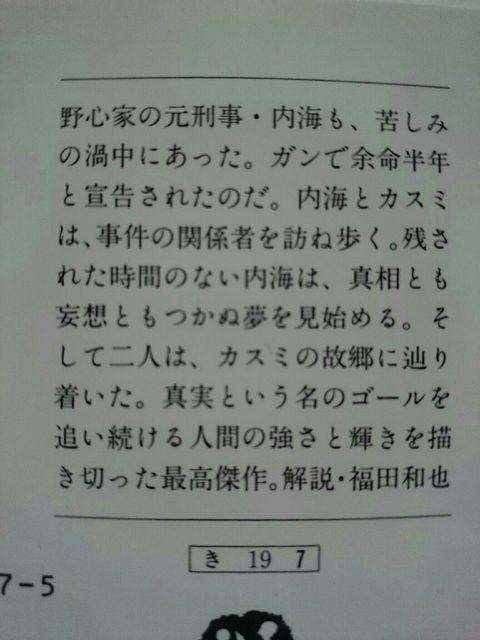 野心家の元刑事・内海も、苦しみ
の渦中にあった。ガンで余命半年
と宣告されたのだ。内海とカスミ
は、事件の関係者を訪ね歩く。残さ
れた時間のない内海は、真相とも
妄想ともつかぬ夢を見始める。そ
して二人は、カスミの故郷に辿り
着いた。真実という名のゴールを
追い続ける人間の強さと輝きを描
き切った最高傑作。解説・福田和也
き 19 7
7-5